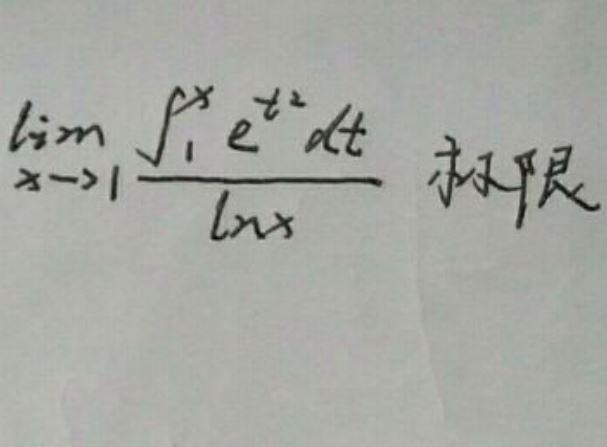 lim x→1 ∫₁ˣ e^{t²} dt / ln x 极限